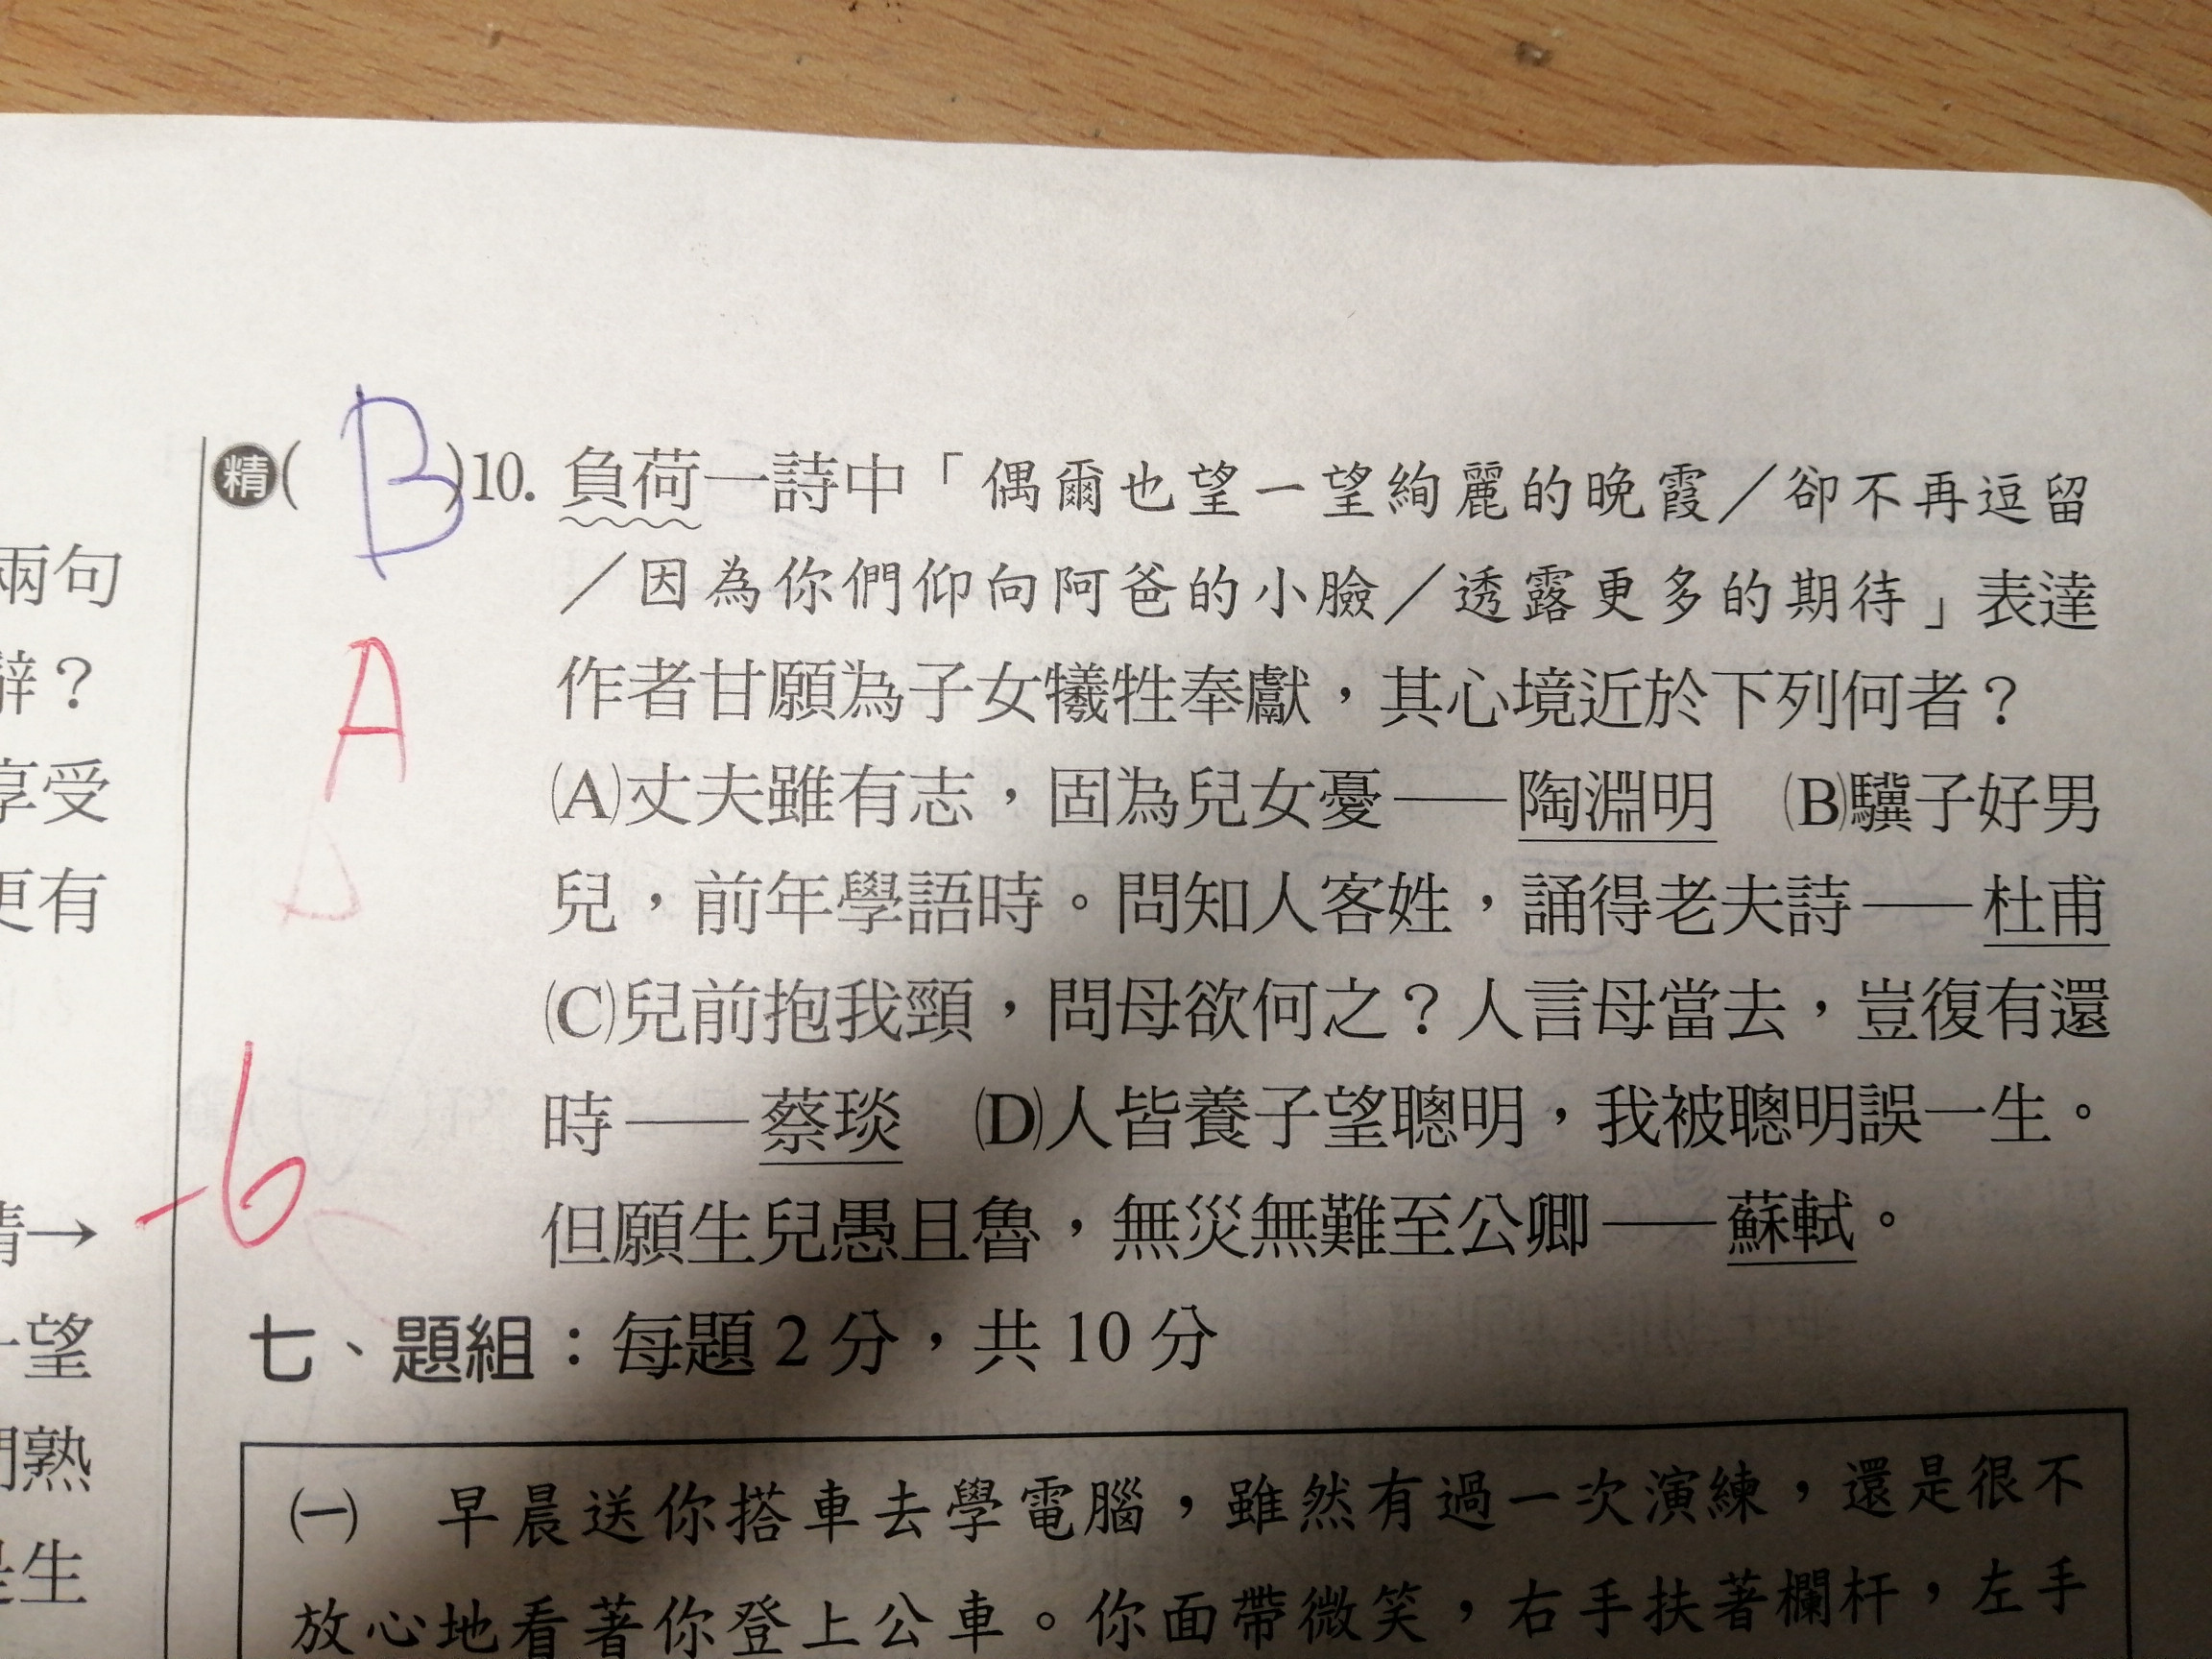 兩句
辭？
享受
更有
情→
一望
們熟
是生
精( B )10. 負荷一詩中「偶爾也望一望絢麗的晚霞／卻不再逗留
／因為你們仰向阿爸的小臉／透露更多的期待」表達
A
作者甘願為子女犧牲奉獻，其心境近於下列何者？
(A)丈夫雖有志，固為兒女憂——陶淵明 (B)驥子好男
兒，前年學語時。問知人客姓，誦得老夫詩——杜甫
(C)兒前抱我頸，問母欲何之？人言母當去，豈復有還
時——蔡琰 (D)人皆養子望聰明，我被聰明誤一生。
-6
但願生兒愚且魯，無災無難至公卿——蘇軾。
七、題組：每題 2 分，共 10 分
㈠ 早晨送你搭車去學電腦，雖然有過一次演練，還是很不
放心地看著你登上公車。你面帶微笑，右手扶著欄杆，左手